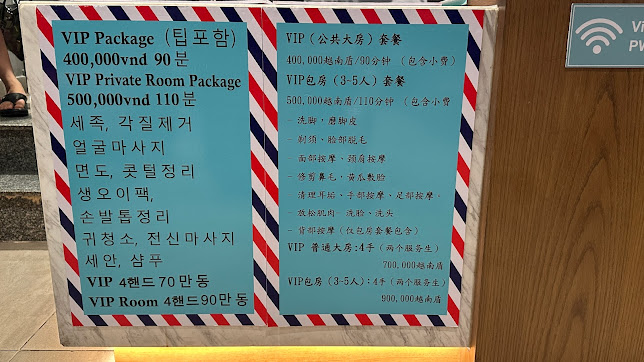 VIP Package (팁포함)
400,000vnd 90분
VIP Private Room Package
500,000vnd 110분
세족, 각질제거
얼굴마사지
면도, 콧털정리
생오이팩,
손발톱정리
귀청소, 전신마사지
세안, 샴푸
VIP 4핸드70만동
VIP Room 4핸드90만동
VIP (公共大房) 套餐
400,000越南盾/90分钟 (包含小費)
VIP包房 (3-5人) 套餐
500,000越南盾/110分钟 (包含小費
- 洗脚, 磨脚皮
- 剃须、脸部脱毛
- 面部按摩、颈肩按摩
- 修剪鼻毛、黄瓜敷脸
- 清理耳垢、手部按摩、足部按摩。
- 放松肌肉- 洗脸、洗头
- 背部按摩 (仅包房套餐包含)
VIP 普通大房:4手 (两个服务生)
700,000越南盾
VIP包房 (3-5人): 4手 (两个服务生)
900,000越南盾